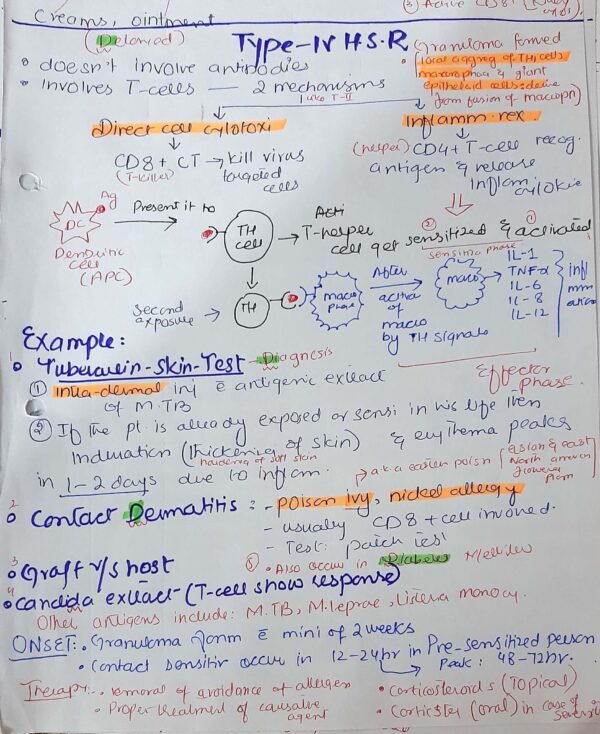 Creams, ointment
(Delayed)
Type-IV H.S.R
• doesn't involve antibodies
• Involves T-cells — 2 mechanisms
Granuloma formed
(local aggreg of TH1 cells
macrophag & giant
epitheloid cells
from fusion of macroph)
Direct cell cytotoxi
CD8 + CT → kill virus
(T-killer) targeted
cells
Inflamm. rex.
(helper) CD4+ T-cell recog.
antigen & release
inflam
cytokine
Ag
DC
Dendritic
cell
(APC)
Present it to
TH
cell
T-helper
cell get sensitized & activated
② ①
sensitiza phase
Second
exposure
TH
macro
phage
After
activa
of
macro
by TH signals
macro
IL-1
TNF-α
IL-6
IL-8
IL-12
inf
mm
ation
Effector
-phase.
Example:
1
• Tuberculin-Skin-Test - Diagnosis
① intra-dermal inj c̄ antigenic extract
of M.TB
② If the pt. is already exposed or sensi in his life then
Induration (thickening of skin) & erythema peaks
hardening of soft skin
in 1-2 days due to inflam.
a.k.a eastern poison
2
• Contact Dermatitis: - Poison ivy, nickel allergy
- usually CD8 + cell involved.
- Test: patch test
3
• Graft v/s host
⑤ • Also occur in Diabetes Mellitus
4
• Candida extract (T-cell show response)
Other antigens include: M.TB, M.leprae, Listeria monocy.
ONSET: • Granuloma form c̄ mini of 2 weeks
• Contact sensitiv occur in 12-24hr in Pre-sensitized person
Peak: 48-72hr.
Therapy: • removal of avoidance of allergen
• Proper treatment of causative
agent
• Corticosteroids (Topical)
• Corticster (oral) in case of